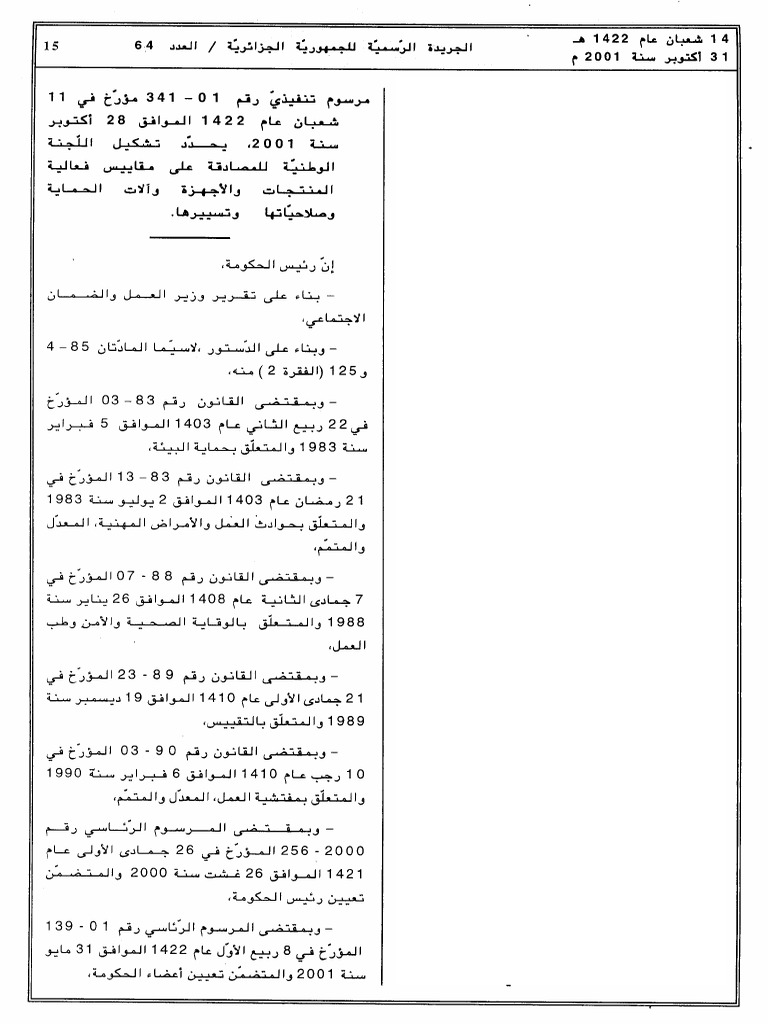 14 شعبان عام 1422 هـ
31 أكتوبر سنة 2001 م
الجريدة الرّسميّة للجمهوريّة الجزائريّة / العدد 64
15
مرسوم تنفيذيّ رقم 01 - 341 مؤرّخ في 11
شعبان عام 1422 الموافق 28 أكتوبر
سنة 2001، يحدّد تشكيل اللّجنة
الوطنيّة للمصادقة على مقاييس فعالية
المنتجات والأجهزة وآلات الحماية
وصلاحيّاتها وتسييرها.
إنّ رئيس الحكومة،
- بناء على تقرير وزير العمل والضمان
الاجتماعي،
- وبناء على الدّستور ،لاسيّما المادّتان 85 - 4
و 125 (الفقرة 2 ) منه،
- وبمقتضى القانون رقم 83 - 03 المؤرّخ
في 22 ربيع الثاني عام 1403 الموافق 5 فبراير
سنة 1983 والمتعلّق بحماية البيئة،
- وبمقتضى القانون رقم 83 - 13 المؤرّخ في
21 رمضان عام 1403 الموافق 2 يوليو سنة 1983
والمتعلّق بحوادث العمل والأمراض المهنية، المعدّل
والمتمّم،
- وبمقتضى القانون رقم 88 - 07 المؤرّخ في
7 جمادى الثانية عام 1408 الموافق 26 يناير سنة
1988 والمتعلّق بالوقاية الصحية والأمن وطب
العمل،
- وبمقتضى القانون رقم 89 - 23 المؤرّخ في
21 جمادى الأولى عام 1410 الموافق 19 ديسمبر سنة
1989 والمتعلّق بالتقييس،
- وبمقتضى القانون رقم 90 - 03 المؤرّخ في
10 رجب عام 1410 الموافق 6 فبراير سنة 1990
والمتعلّق بمفتشية العمل، المعدّل والمتمّم،
- وبمقتضى المرسوم الرّئاسي رقم
2000 - 256 المؤرّخ في 26 جمادى الأولى عام
1421 الموافق 26 غشت سنة 2000 والمتضمّن
تعيين رئيس الحكومة،
- وبمقتضى المرسوم الرّئاسي رقم 01 - 139
المؤرّخ في 8 ربيع الأوّل عام 1422 الموافق 31 مايو
سنة 2001 والمتضمّن تعيين أعضاء الحكومة،